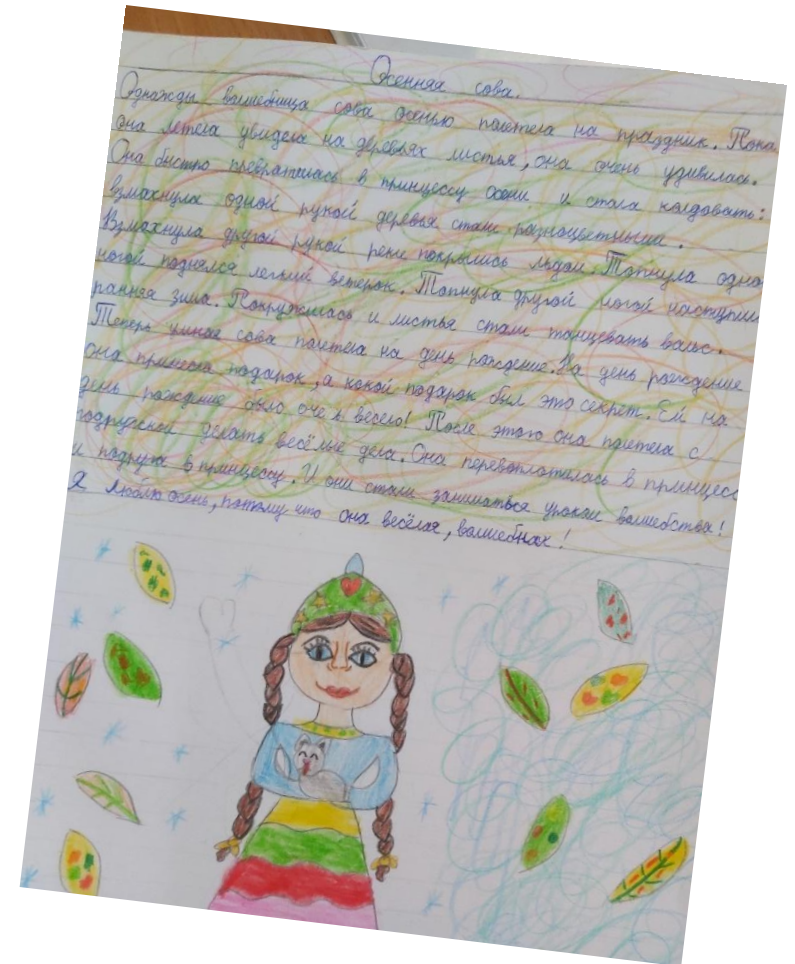 Осенняя сова.
Однажды волшебница сова осенью полетела на праздник. Пока
она летела увидела на деревьях листья, она очень удивилась.
Она быстро превратилась в принцессу осени и стала колдовать:
взмахнула одной рукой деревья стали разноцветными.
Взмахнула другой рукой реки покрылись льдом. Топнула одно
ногой поднялся легкий ветерок. Топнула другой ногой наступил
ранняя зима. Покружилась и листья стали танцевать вальс.
Теперь умная сова полетела на день рождение. На день рождение
она принесла подарок, а какой подарок был это секрет. Ей на
день рождение было очень весело! После этого она полетела с
подружкой делать весёлые дела. Она перевоплотилась в принцесс
и подруга в принцессу. И они стали заниматься уроком волшебства!
Я люблю осень, потому что она весёлая, волшебная!